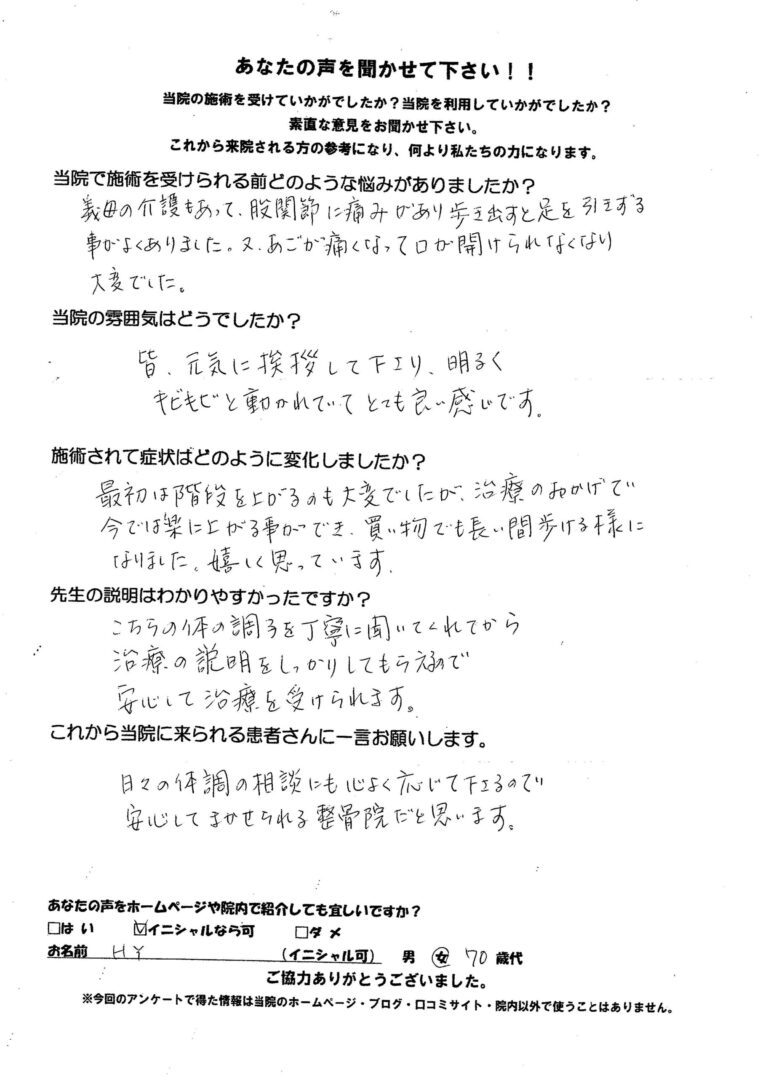 あなたの声を聞かせて下さい！！
当院の施術を受けていかがでしたか？当院を利用していかがでしたか？
素直な意見をお聞かせ下さい。
これから来院される方の参考になり、何より私たちの力になります。
当院で施術を受けられる前どのような悩みがありましたか？
義母の介護もあって、股関節に痛みがあり歩き出すと足を引きずる
事がよくありました。又、あごが痛くなって口が開けられなくなり
大変でした。
当院の雰囲気はどうでしたか？
皆、元気に挨拶して下エり、明るく
キビキビと動かれていてとても良い感じです。
施術されて症状はどのように変化しましたか？
最初は階段を上がるのも大変でしたが、治療のおかげで
今では楽に上がる事ができ、買い物でも長い間歩ける様に
なりました。嬉しく思っています。
先生の説明はわかりやすかったですか？
こちらの体の調子を丁寧に聞いてくれてから
治療の説明をしっかりしてもらえるので
安心して治療を受けられます。
これから当院に来られる患者さんに一言お願いします。
日々の体調の相談にも心よく応じて下エるので
安心してまかせられる整骨院だと思います。
あなたの声をホームページや院内で紹介しても宜しいですか？
□はい ☑イニシャルなら可 □ダメ
お名前 HY (イニシャル可) 男 女 70 歳代
ご協力ありがとうございました。
※今回のアンケートで得た情報は当院のホームページ・ブログ・口コミサイト・院内以外で使うことはありません。